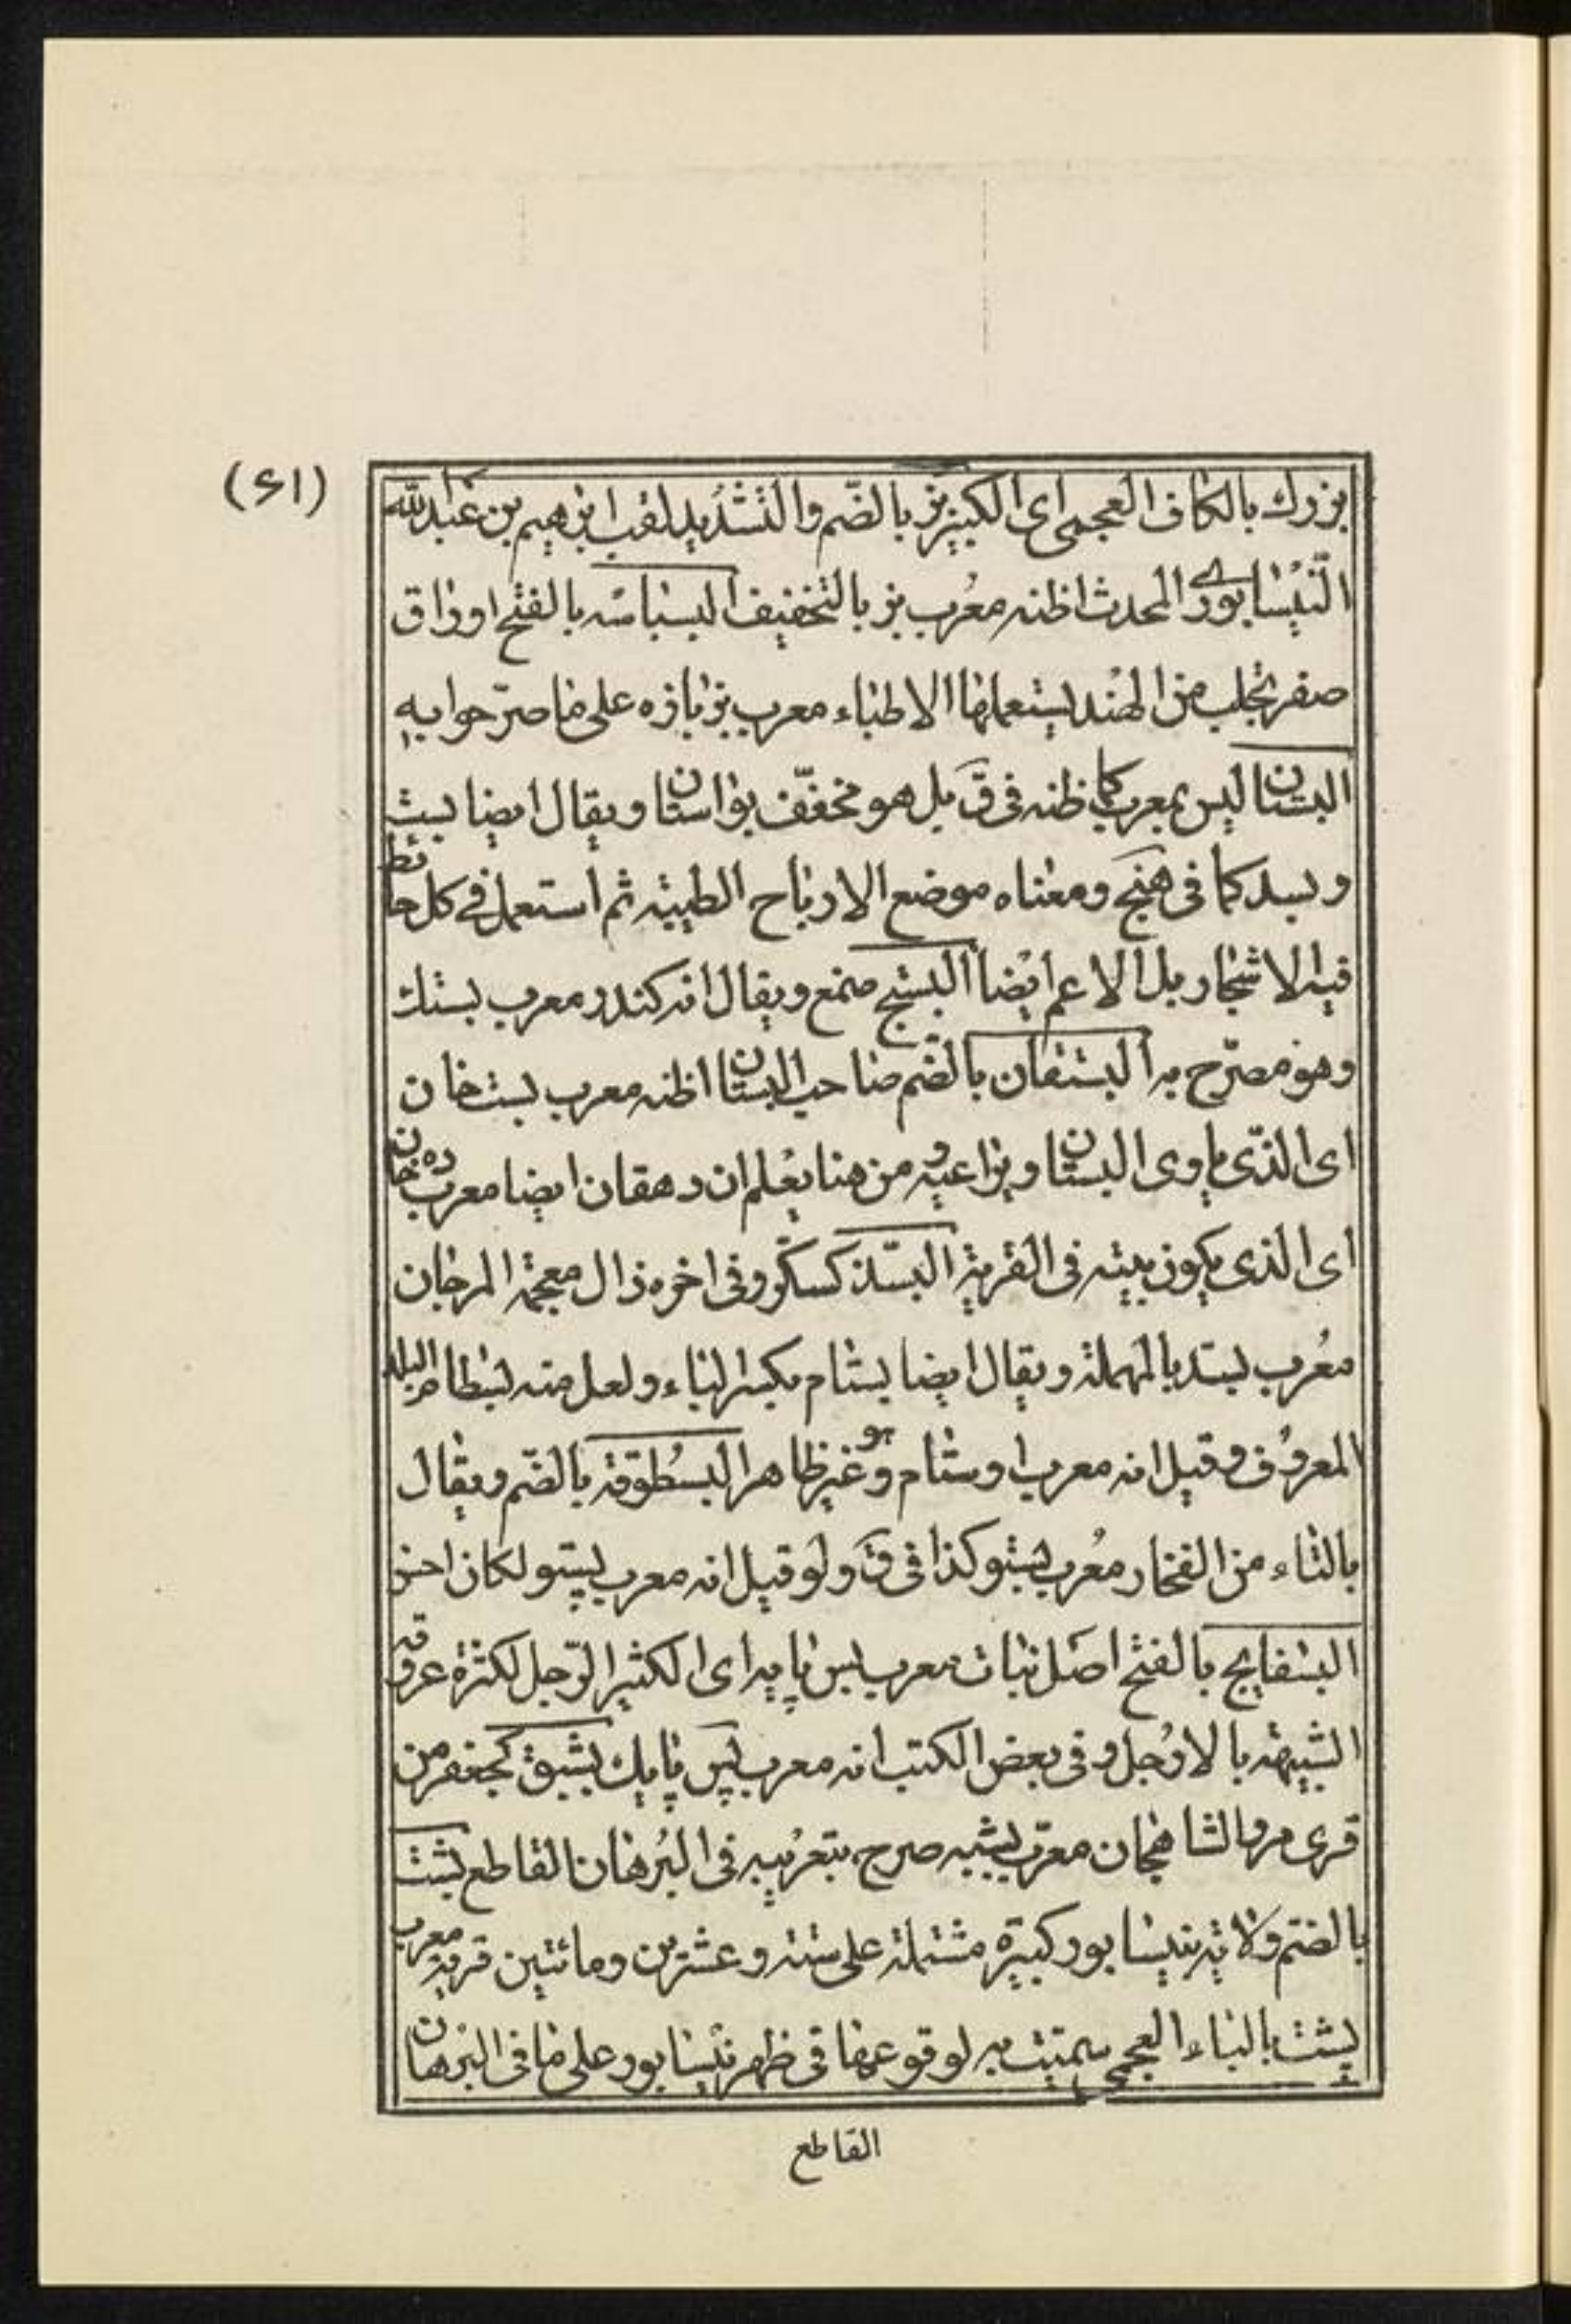 (٤١)
بزرك بالكاف العجمى اى الكبير بز بالضّم والتّشديد لقب ابرهيم بن عبدالله
النّيسابورى المحدث اظنه معُرب بز بالتخفيف البسباسه بالفتح اوراق
صفر تجلب من الهند يستعملها الاطباء معرب بزبازه على ما صرّحوا به
البستان ليس بمعرب كما ظنه فى ق بل هو مخفّف بواستان ويقال ايضا بيث
وبسد كما فى هنج ومعناه موضع الارياح الطيبة ثم استعمل فى كل حائط
فيه الاشجار بل الاعم ايضا البستج صمغ ويقال انه كندر معرب بستك
وهو مصرّح به البستقان بالضّم صاحب البستان اظنه معرب بستخان
اى الذّى ياوى البستان ويراعيه و من هنا يعلم ان دهقان ايضا معرب ده خان
اى الذى يكون بيته فى القرية البسّذ كسكّر وفى اخره ذال معجمة المرجان
معُرب بسّد بالمهملة ويقال ايضا بستام بكسر الباء ولعل منه بسطام البلد
المعروف وقيل انه معرب اوستام وهو غير ظاهر البسُطوقه بالضّم ويقال
بالثاء من الفخار معُرب بستو كذا فى ق ولو قيل انه معرب پيتو لكان احسن
البسفايج بالفتح اصل نبات معرب بس پايه اى الكثير الرّجل لكثرة عروقه
الشبيهة بالارجل وفى بعض الكتب انه معرب پس پايك بشبق كجعفر من
قرى مرو الشاهجان معرّب بشبه صرح بتعريبه فى البُرهان القاطع بشت
بالضّم ولاية بنيسابور كبيرة مشتملة على ستة وعشرين ومائتين قرية معرب
پشت بالباء العجمى سمّيت به لوقوعها فى ظهر نيسابور على ما فى البرهان
القاطع